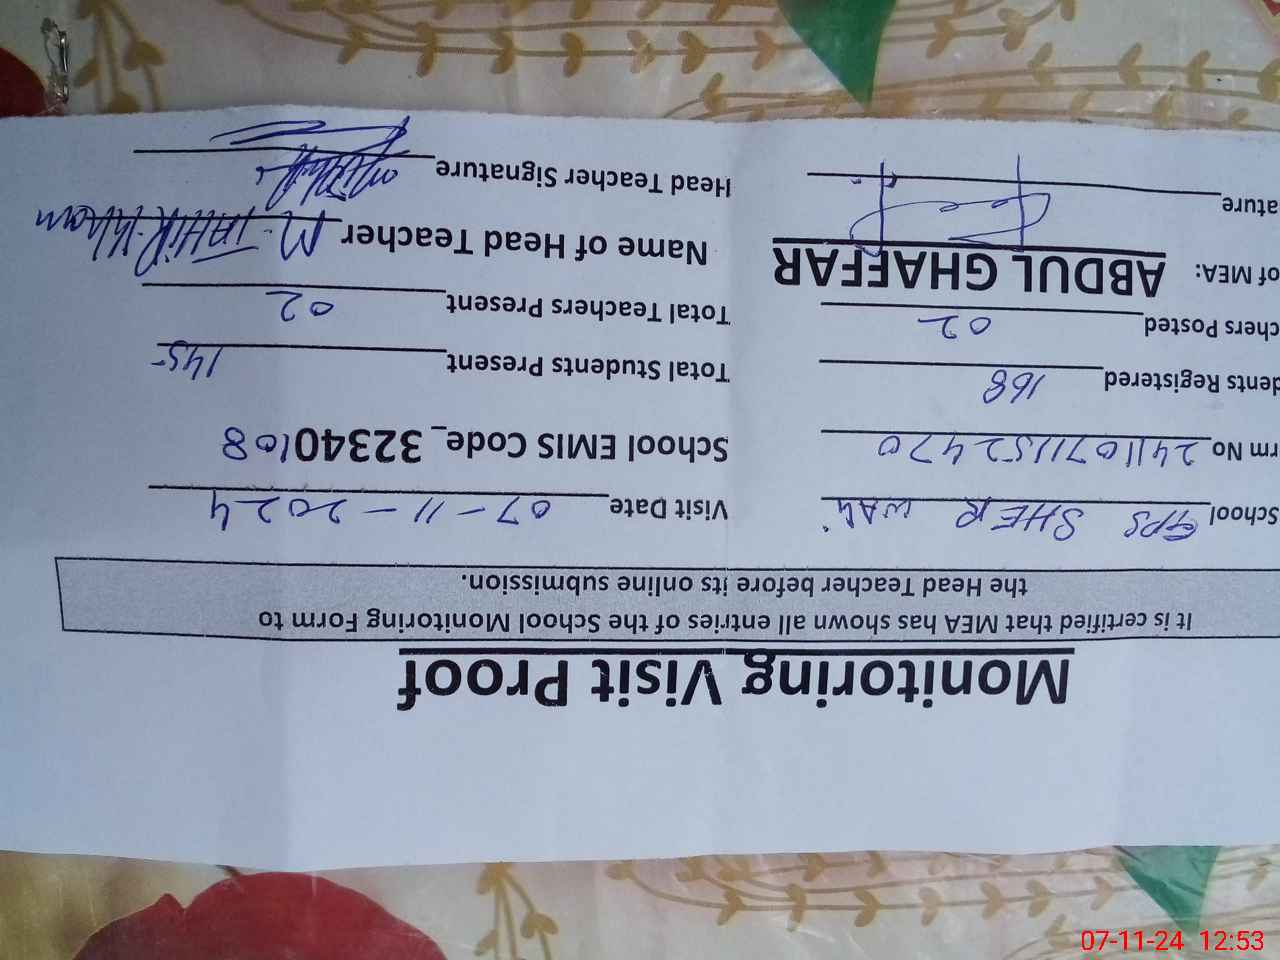 Monitoring Visit Proof
It is certified that MEA has shown all entries of the School Monitoring Form to
the Head Teacher before its online submission.
School GPS SHER WALI Visit Date 07-11-2024
rm No 2411071152470 School EMIS Code_32340108
dents Registered 168 Total Students Present 145
chers Posted 02 Total Teachers Present 02
of MEA: ABDUL GHAFFAR Name of Head Teacher M. TAHIR Khan
ature Head Teacher Signature
07-11-24 12:53